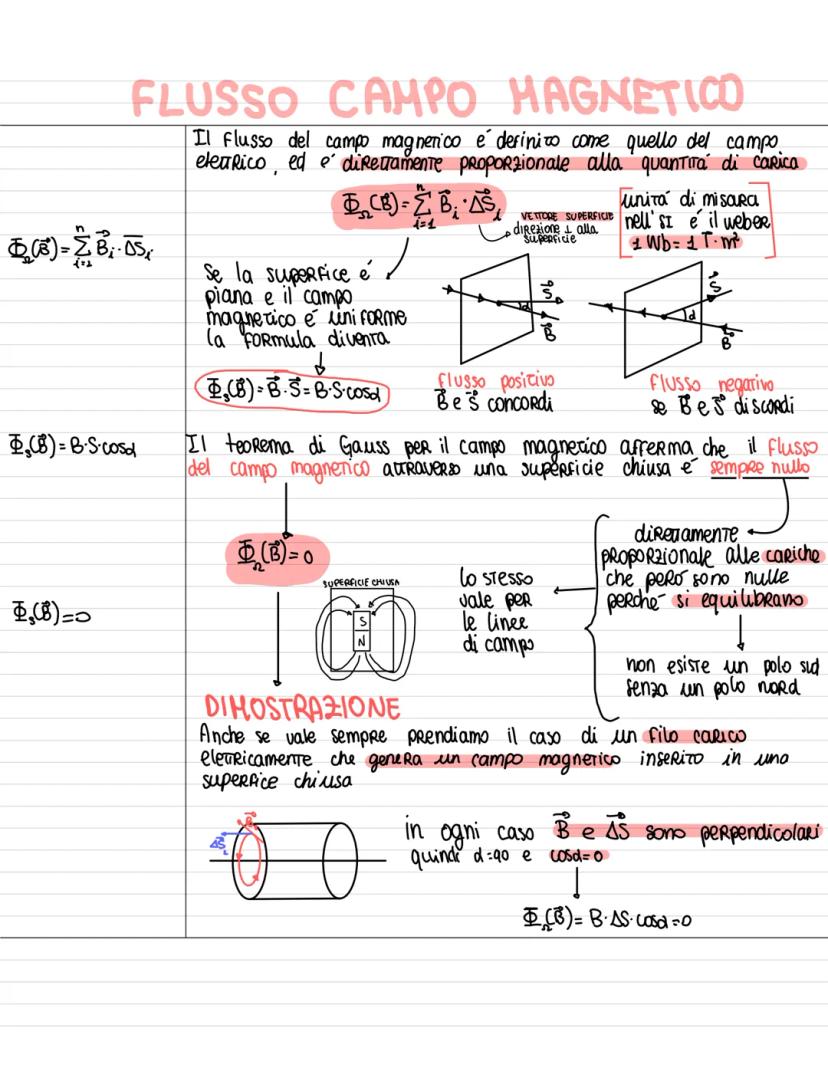 FLUSSO CAMPO MAGNETICO
Il flusso del campo magnetico é definito come quello del campo
elettrico, ed é direttamente proporzionale alla quantitá di carica
Φ_Ω(B⃗)=Σ_{i=1}^{n} B⃗_i·ΔS⃗_i
VETTORE SUPERFICIE
direzione ⊥ alla
superficie
unitá di misura
nell'SI é il weber
1 Wb = 1 T·m²
Φ_Ω(B⃗)=Σ_{i=1}^{n} B⃗_i·ΔS_i
Se la superfice é
piana e il campo
magnetico é uniforme
la formula diventa
Φ_S(B⃗)=B⃗·S⃗=B·S·cosα
S⃗
α
B⃗
flusso positivo
B⃗ e S⃗ concordi
S⃗
α
B⃗
flusso negativo
se B⃗ e S⃗ discordi
Φ_S(B⃗)=B·S·cosα
Il teorema di Gauss per il campo magnetico afferma che il flusso
del campo magnetico attraverso una superficie chiusa é sempre nullo
Φ_Ω(B⃗)=0
SUPERFICIE CHIUSA
S
N
lo stesso
vale per
le linee
di campo
direttamente
proporzionale alle cariche
che peró sono nulle
perché si equilibrano
non esiste un polo sud
senza un polo nord
Φ_S(B⃗)=0
DIMOSTRAZIONE
Anche se vale sempre prendiamo il caso di un filo carico
eletricamente che genera un campo magnetico inserito in una
superfice chiusa
B⃗
ΔS⃗
in ogni caso B⃗ e ΔS⃗ sono perpendicolari
quindi α=90 e cosα=0
Φ_Ω(B⃗)= B·ΔS·cosα=0